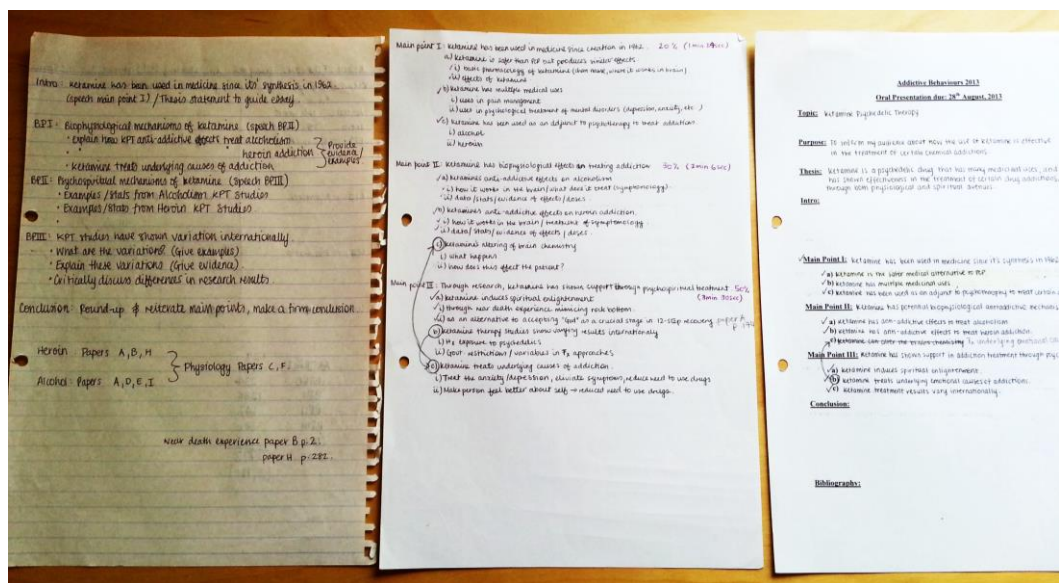 Intro: Ketamine has been used in medicine since its' synthesis in 1962.
(speech main point I) / Thesis statement to guide essay.
BPI: Biophysiological mechanisms of ketamine (speech BPII)
• explain how KPT anti-addictive effects treat alcoholism
• " heroin addiction
Provide evidence/examples
• Ketamine treats underlying causes of addiction
BPII: Psychospiritual mechanisms of ketamine (Speech BPIII)
• Examples/Stats from Alcoholism KPT Studies
• Examples/Stats from Heroin KPT Studies
•
BPIII: KPT studies have shown variation internationally.
• What are the variations? (Give examples)
• Explain these variations (Give evidence).
• Critically discuss differences in research results.
Conclusion: Round-up & reiterate main points, make a firm conclusion.
Heroin: Papers A, B, H
Physiology Papers C, F.
Alcohol: Papers A, D, E, I
Near death experience paper B p.2.
paper H p.282.
Main point I: Ketamine has been used in medicine since creation in 1962. 20% (1min
a) Ketamine is safer than PCP but produces similar effects
i) basic pharmacology of ketamine (when made, where it works in brain)
ii) effects of ketamine
b) Ketamine has multiple medical uses
i) uses in pain management
ii) uses in psychological treatment of mental disorders (depression, anxiety, etc.)
c) Ketamine has been used as an adjunct to psychotherapy to treat addictions.
i) alcohol
ii) heroin
Main point II: Ketamine has biophysiological effects on treating addiction 30% (2min 6sec)
a) Ketamine's anti-addictive effects on alcoholism
i) how it works in the brain/what does it treat (symptomology)
ii) data/stats/evidence of effects/doses
b) Ketamine's anti-addictive effects on heroin addiction.
i) how it works in the brain/treatment of symptomology
ii) data/stats/evidence of effects/doses.
c) Ketamine's altering of brain chemistry
i) what happens
ii) how does this effect the present?
Main point III: Through research, ketamine has shown support through psychospiritual treatment. 50%
(3min 30sec)
a) Ketamine induces spiritual enlightenment
i) through near death experience mimicing rock bottom.
ii) as an alternative to accepting "God" as a crucial stage in 12-step recovery. paper A
b) Ketamine therapy studies show varying results internationally
i) exposure to psychedelics
ii) Govt. restrictions/variations in approaches
c) Ketamine treats underlying causes of addiction.
i) Treat the anxiety/depression, eleviate symptoms, reduce need to use drugs
ii) Make person feel better about self → reduced need to use drugs.
Addictive Behaviours 2013
Oral Presentation due: 28th August, 2013
Topic: Ketamine Psychedelic Therapy
Purpose: To inform my audience about how the use of ketamine is effective
in the treatment of certain chemical addictions.
Thesis: Ketamine is a psychedelic drug that has many medical uses, and
has shown effectiveness in the treatment of certain drug addictions,
through both physiological and spiritual avenues.
Intro:
Main Point I: Ketamine has been used in medicine since it's synthesis in 1962
a) Ketamine is the safer medical alternative to PCP
b) Ketamine has multiple medicinal uses
c) Ketamine has been used as an adjunct to psychotherapy to treat certain
Main Point II: Ketamine has potential biophysiological aantiaddictive mechanis
a) Ketamine has anti-addictive effects to treat alcoholism
b) Ketamine has anti-addictive effects to treat heroin addiction.
c) Ketamine can alter the brain's chemistry
Main Point III: Ketamine has shown support in addiction treatment through psyc
a) Ketamine induces spiritual enlightenment.
b) Ketamine treats underlying emotional causes of addictions.
c) Ketamine treatment results vary internationally.
Conclusion:
Bibliography: